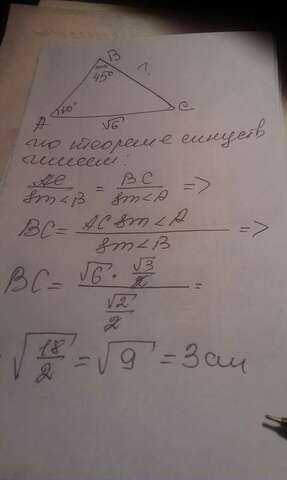 B
45°
?
60°
A
√6
C
по теореме синусов
имеем:
AC/sin∠B = BC/sin∠A =>
BC = AC sin∠A / sin∠B =>
BC = (√6 · √3/2) / (√2/2) =
= √(18/2) = √9 = 3 см